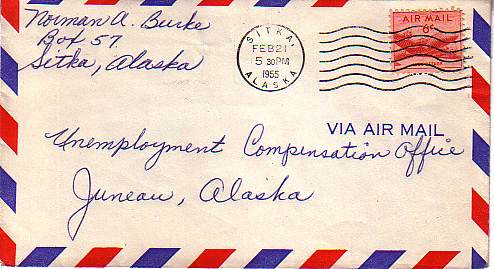 Norman A. Burke
Box 57
Sitka, Alaska
SITKA,
FEB 21
5 30 PM
1955
ALASKA
AIR MAIL
6¢
VIA AIR MAIL
Unemployment Compensation Office
Juneau, Alaska